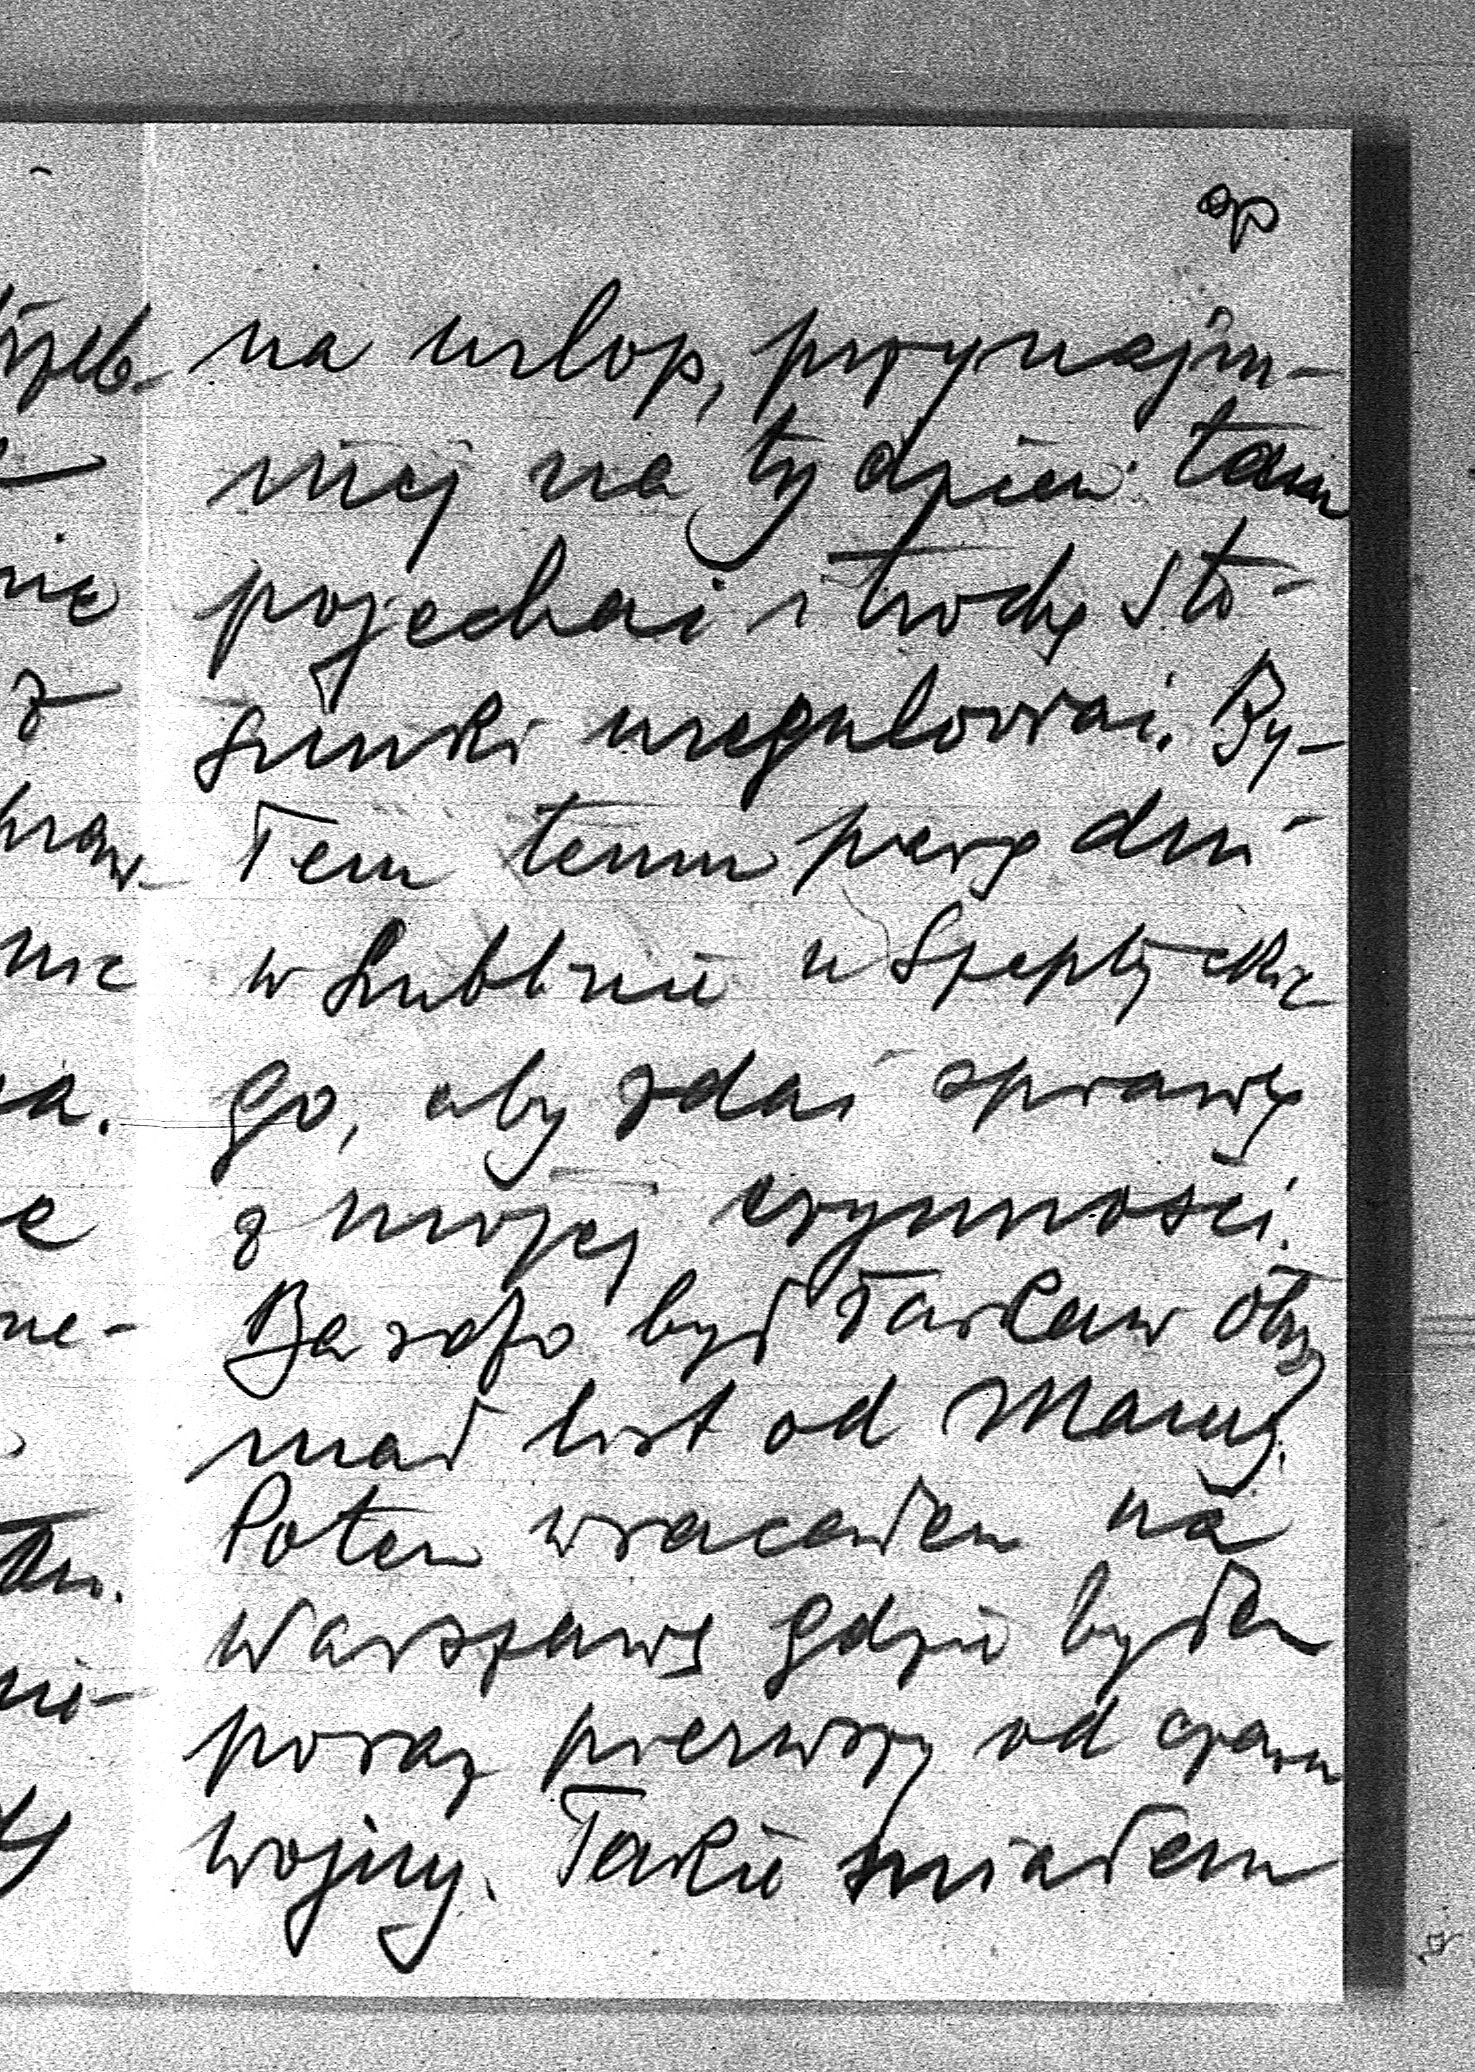 na urlop, przynajm-
niej na tydzień tam
pojechać i trochę sto-
sunki uregulować. By-
łem temu parę dni
w Lublinie u Szeptyckie
go, aby zdać sprawę
z mojej czynności.
Bardzo był łaskaw otrzy
mał list od
Potem wracałem na
Warszawę gdzie byłem
poraz pierwszy od czasu
wojny. Takie miałem